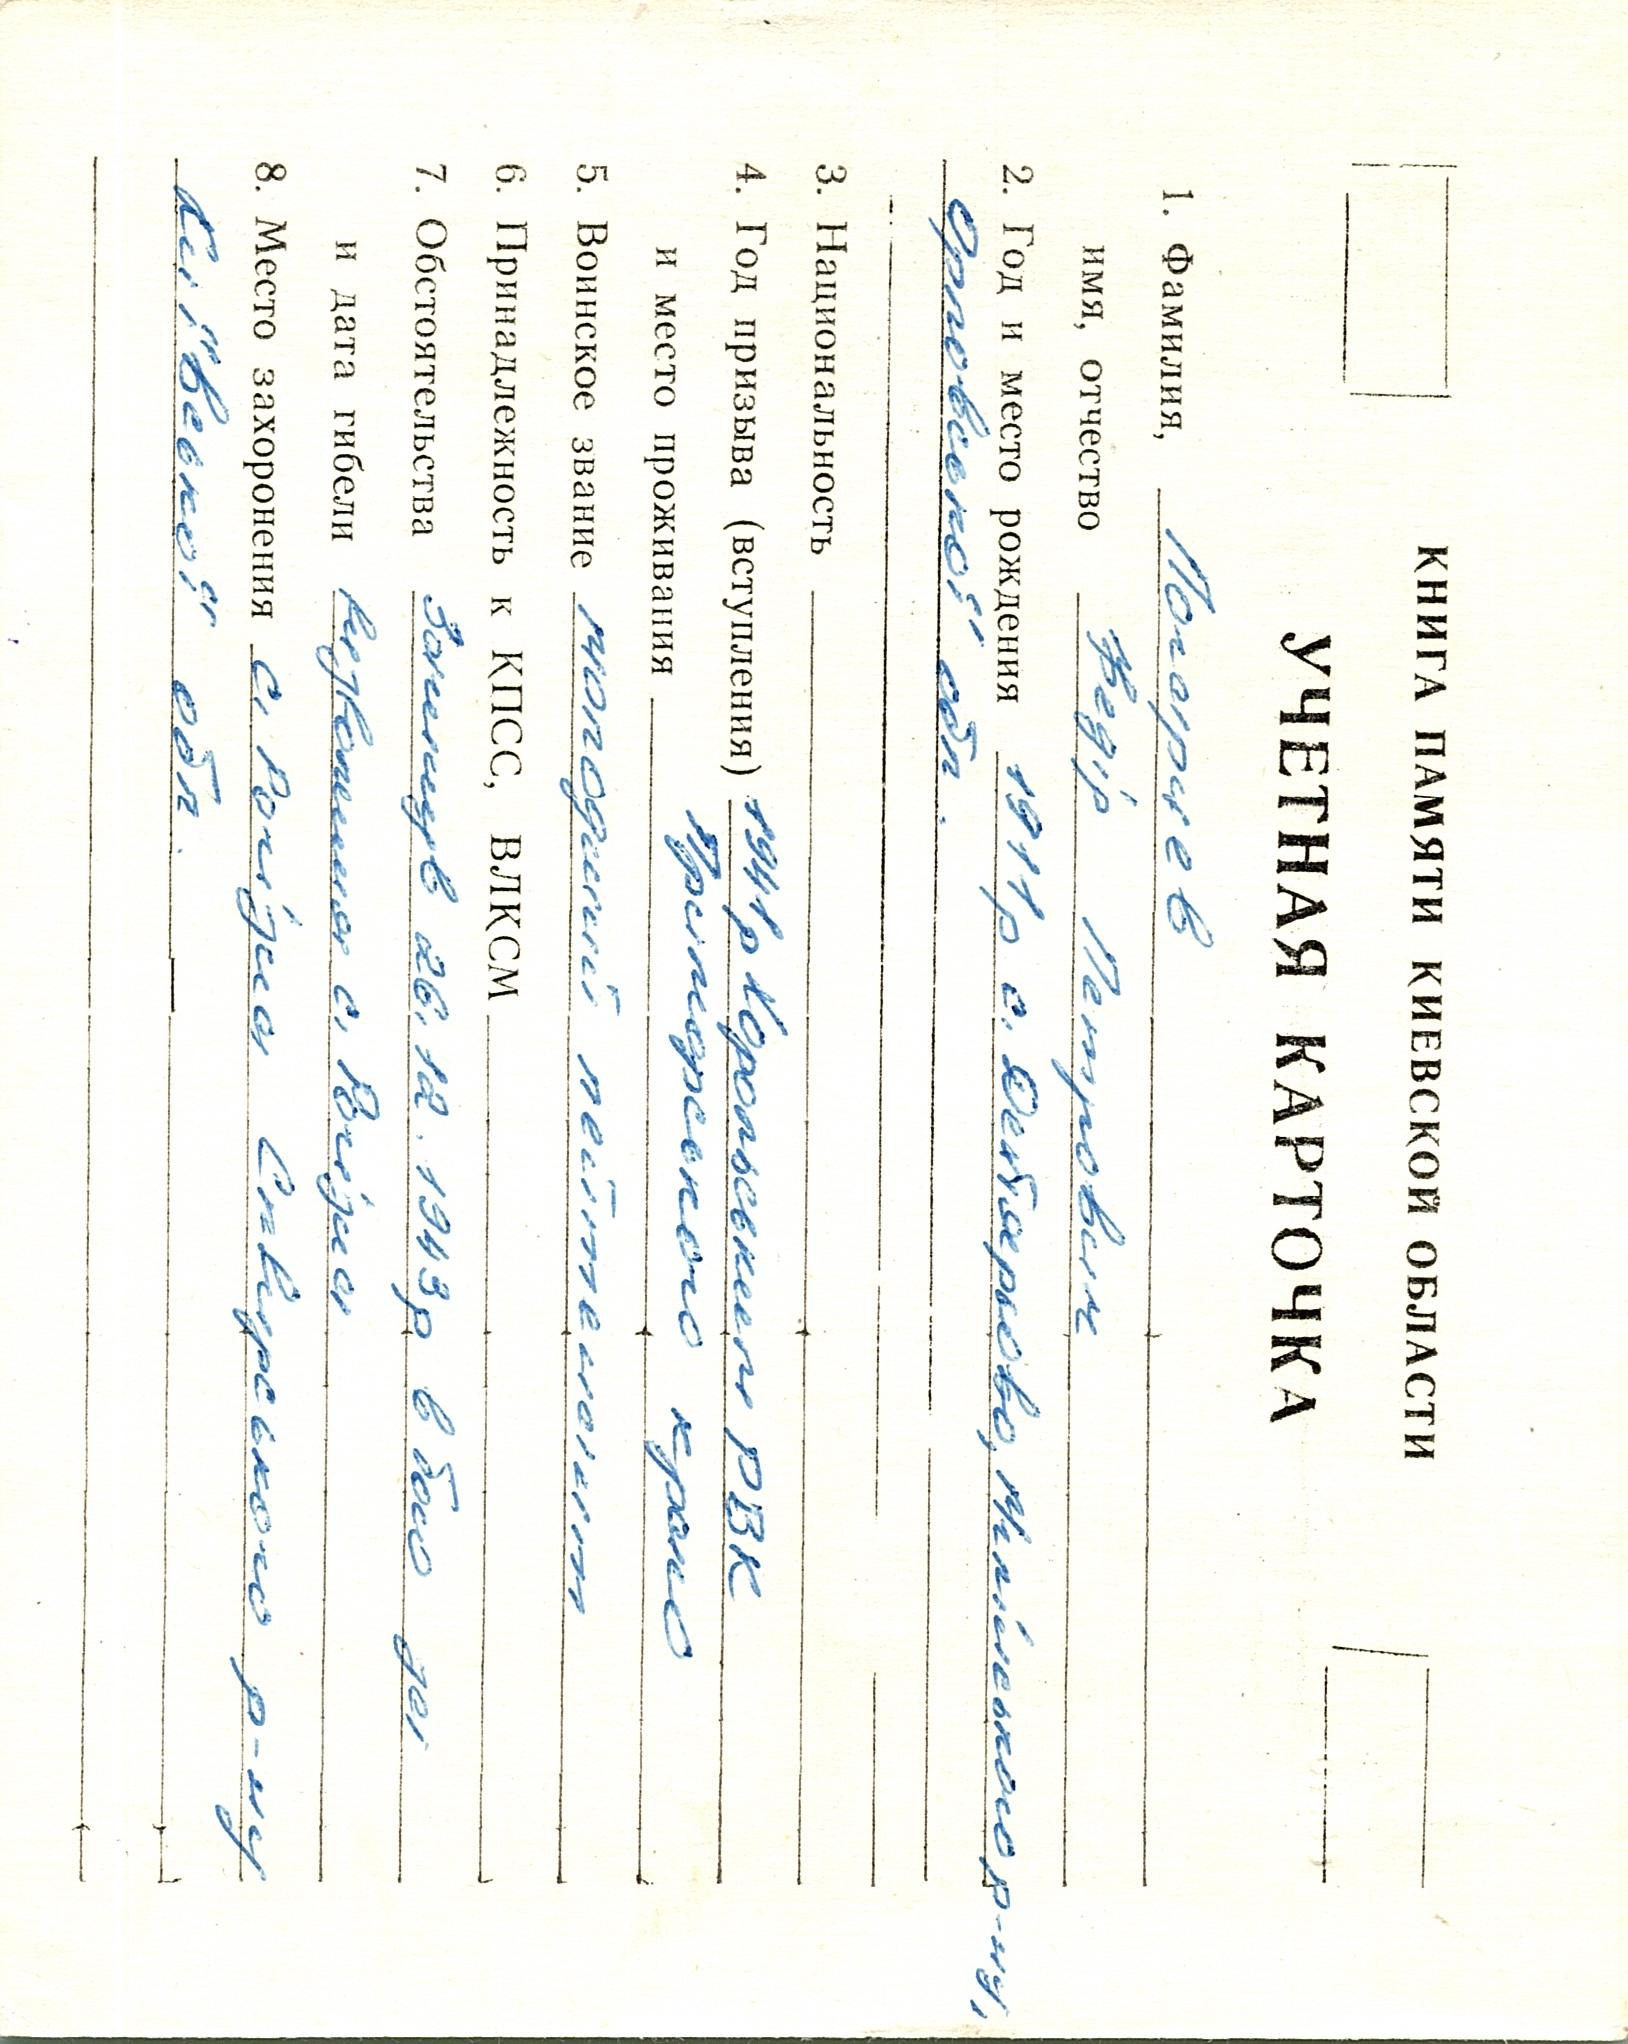 КНИГА ПАМЯТИ КИЕВСКОЙ ОБЛАСТИ
УЧЕТНАЯ КАРТОЧКА
1. Фамилия, Погорєв
имя, отчество Федір Петрович
2. Год и место рождения 1911р с. р-ну,
Орловської обл.
3. Национальность
4. Год призыва (вступления) 1941р РВК
и место проживания Приморського краю
5. Воинское звание молодший лейтенант
6. Принадлежность к КПСС, ВЛКСМ
7. Обстоятельства Загинув 26.12.1943р в бою
и дата гибели с.
8. Место захоронения с. Сквирського р-ну
Київської обл.